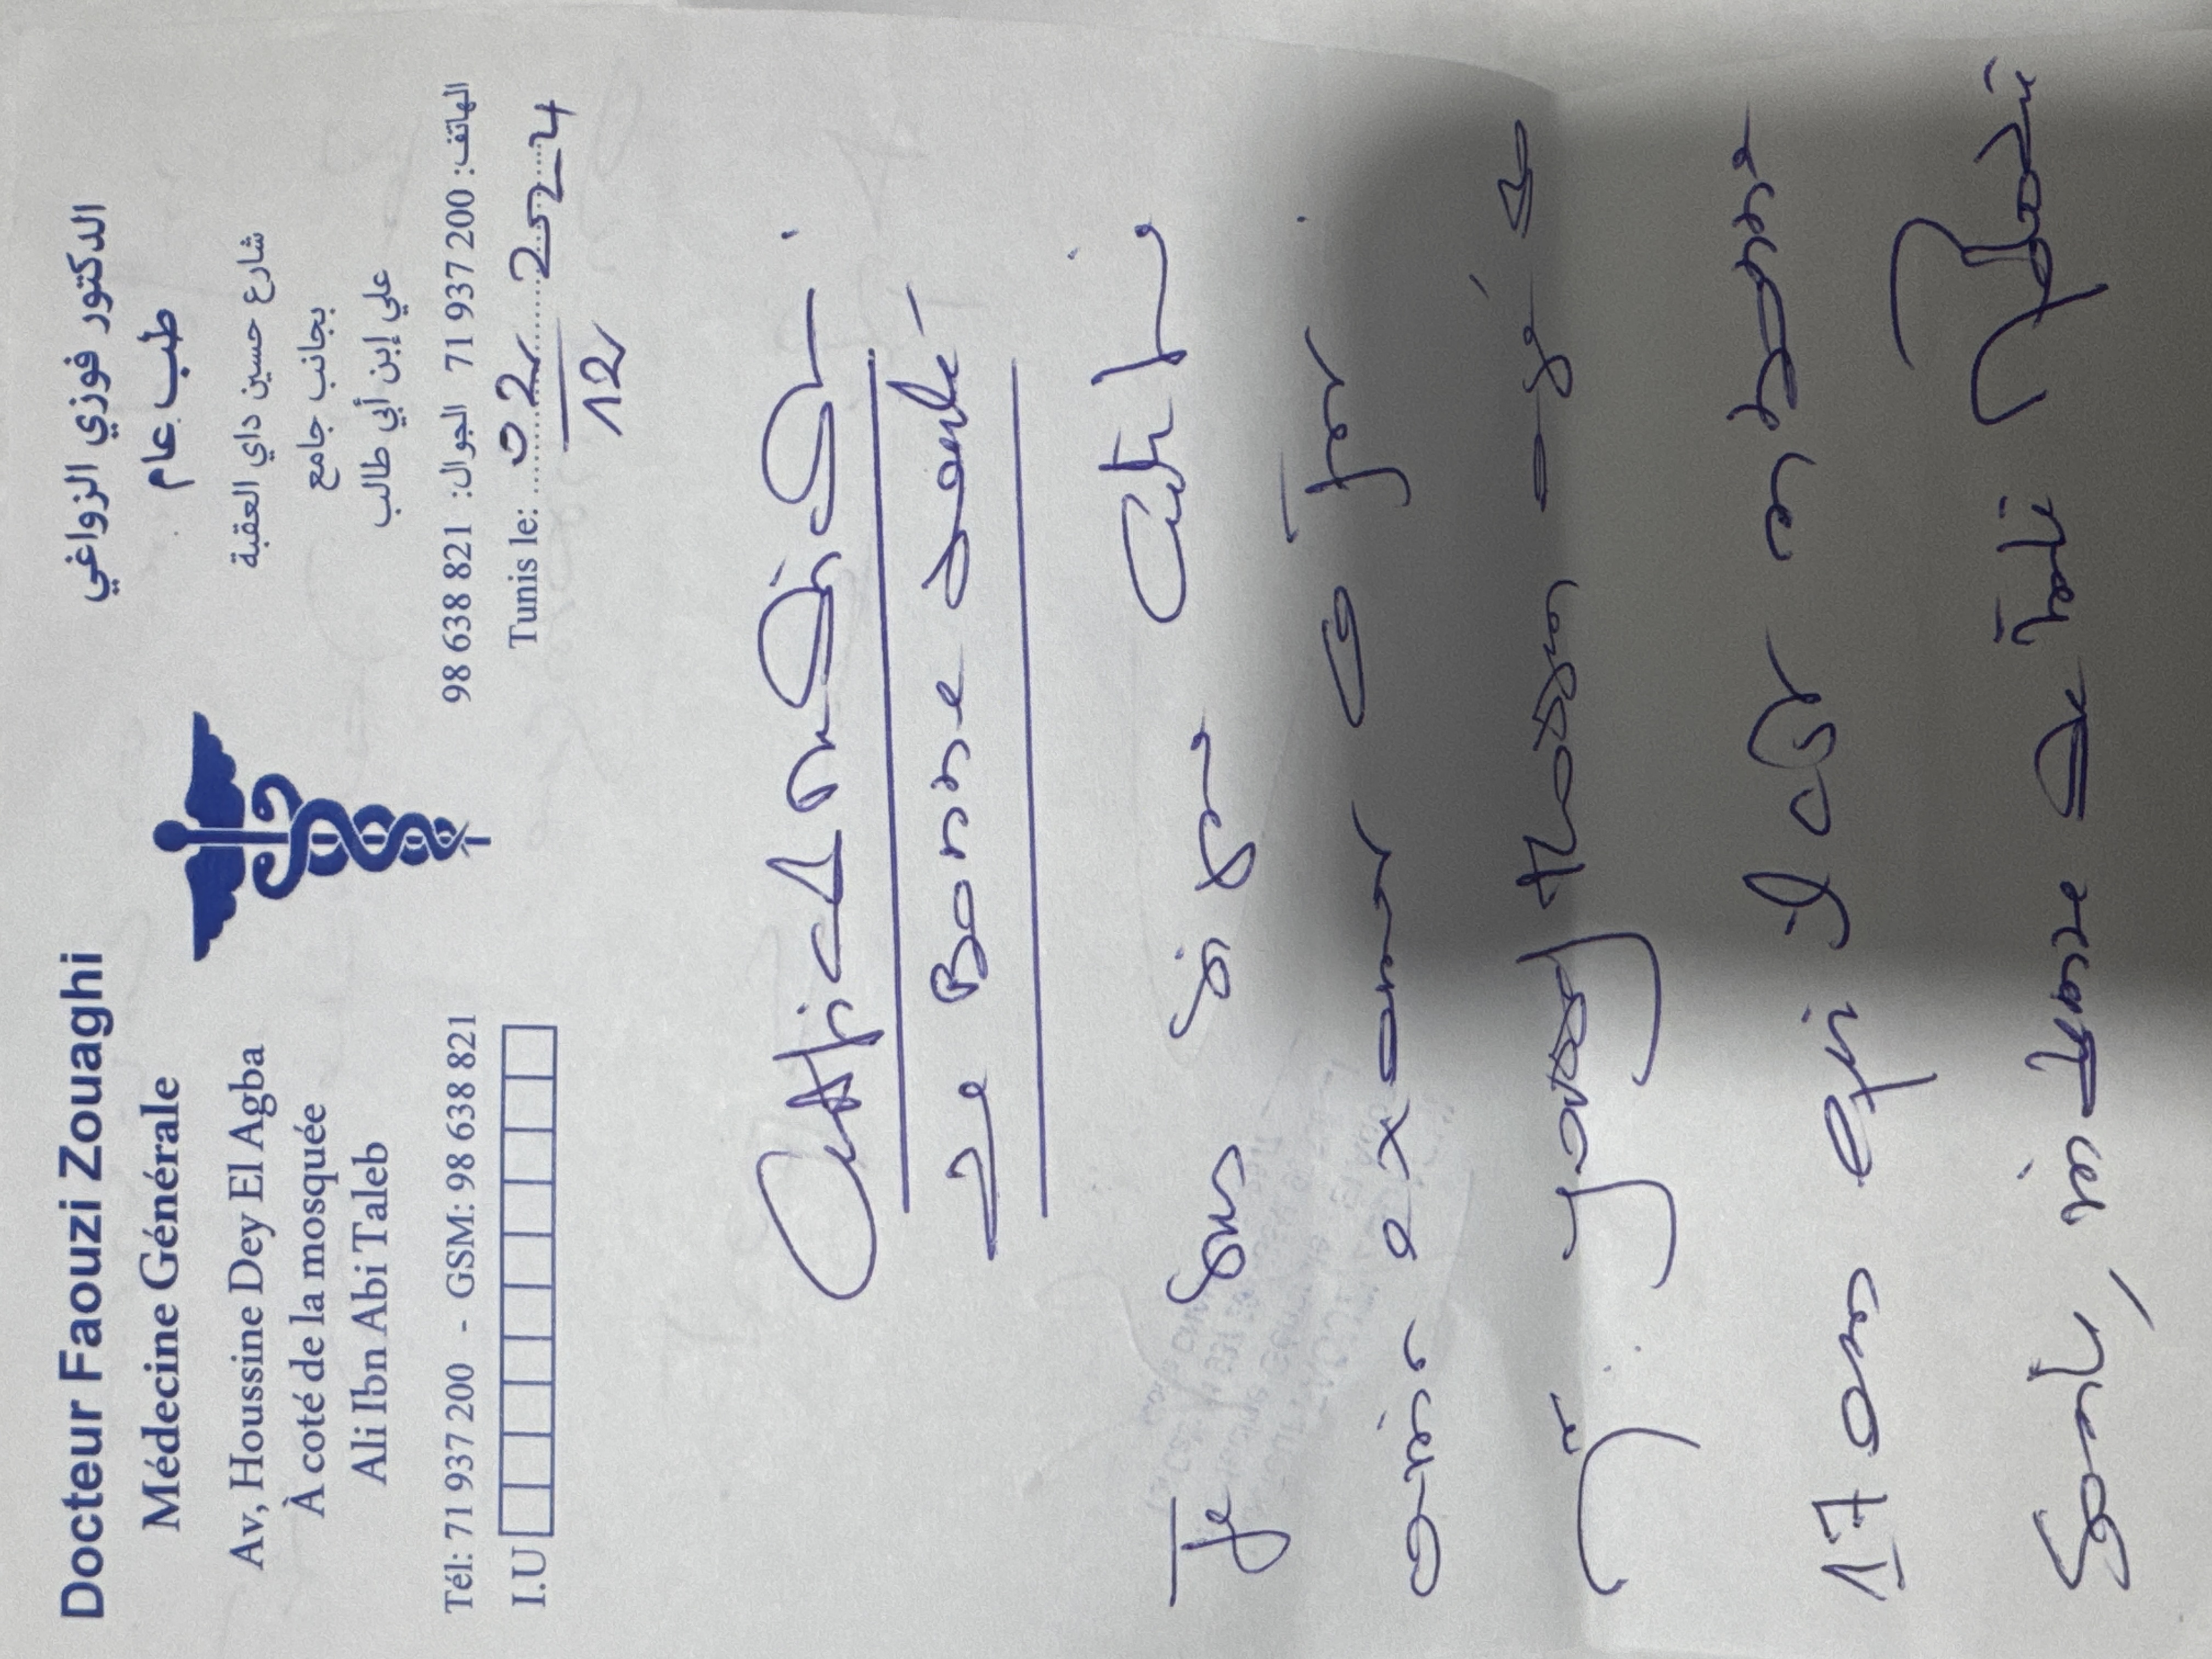 Docteur Faouzi Zouaghi
Médecine Générale
Av, Houssine Dey El Agba
À coté de la mosquée
Ali Ibn Abi Taleb
Tél: 71 937 200 - GSM: 98 638 821
I.U
الدكتور فوزي الزواغي
طب عام
شارع حسين داي العقبة
بجانب جامع
علي إبن أبي طالب
الهاتف: 200 937 71 الجوال: 821 638 98
Tunis le: 02/12 2024
Certificat médical
de Bonne santé
Je soussigné certifie
avoir examiné ce jour
âgé de
17 ans qu'il est en bonne
santé,